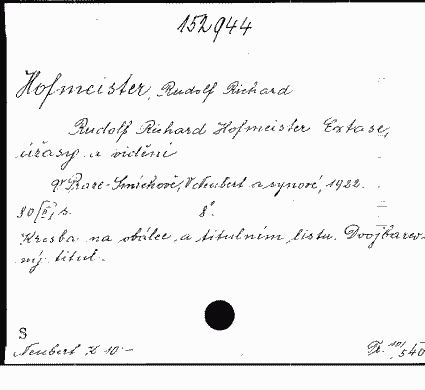 152944
Hofmeister, Rudolf Richard
Rudolf Richard Hofmeister Extase,
úžasy a vidění
V Praze-Smíchově, V Neubert a synové, 1922.
80/II/, s. 8°.
Kresba na obálce a titulním listu. Dvojbarev-
ný titul.
S
Neubert K 10.-